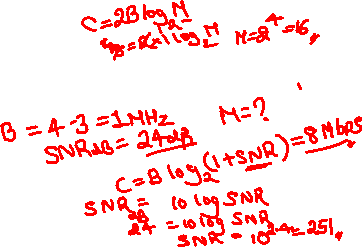 C=2B log₂M
8=2×1 log₂M M=2⁴=16,
B = 4-3 = 1MHz M=?
SNRdB = 24dB
C=B log₂(1+SNR)=8Mbps
SNRdB = 10 log SNR
24 = 10 log SNR
SNR = 10^2.4 = 251,